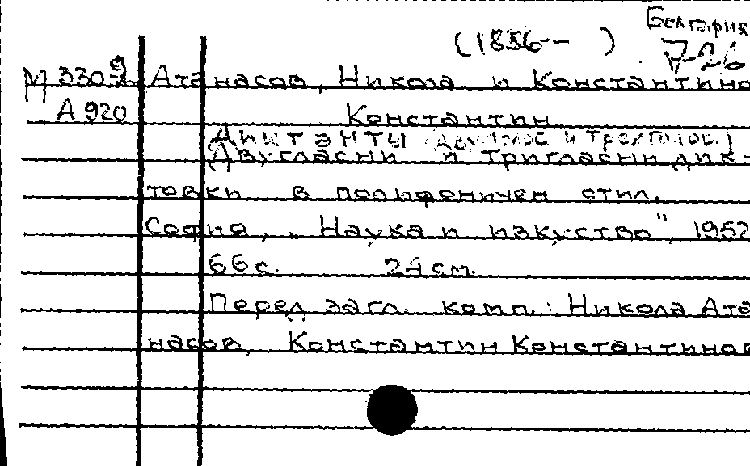 Болгария
(1886- ) 7-26
М 330.9 Атанасов, Никола и Константино
А 920 Константин
Диктанты (двухголос. и трехголос.)
Двугласни и тригласни дик-
товки в полифоничен стил.
София, „Наука и изкуство", 1952
66 с. 24 см.
Перед загл. комп.: Никола Ата-
насов, Константин Константинов